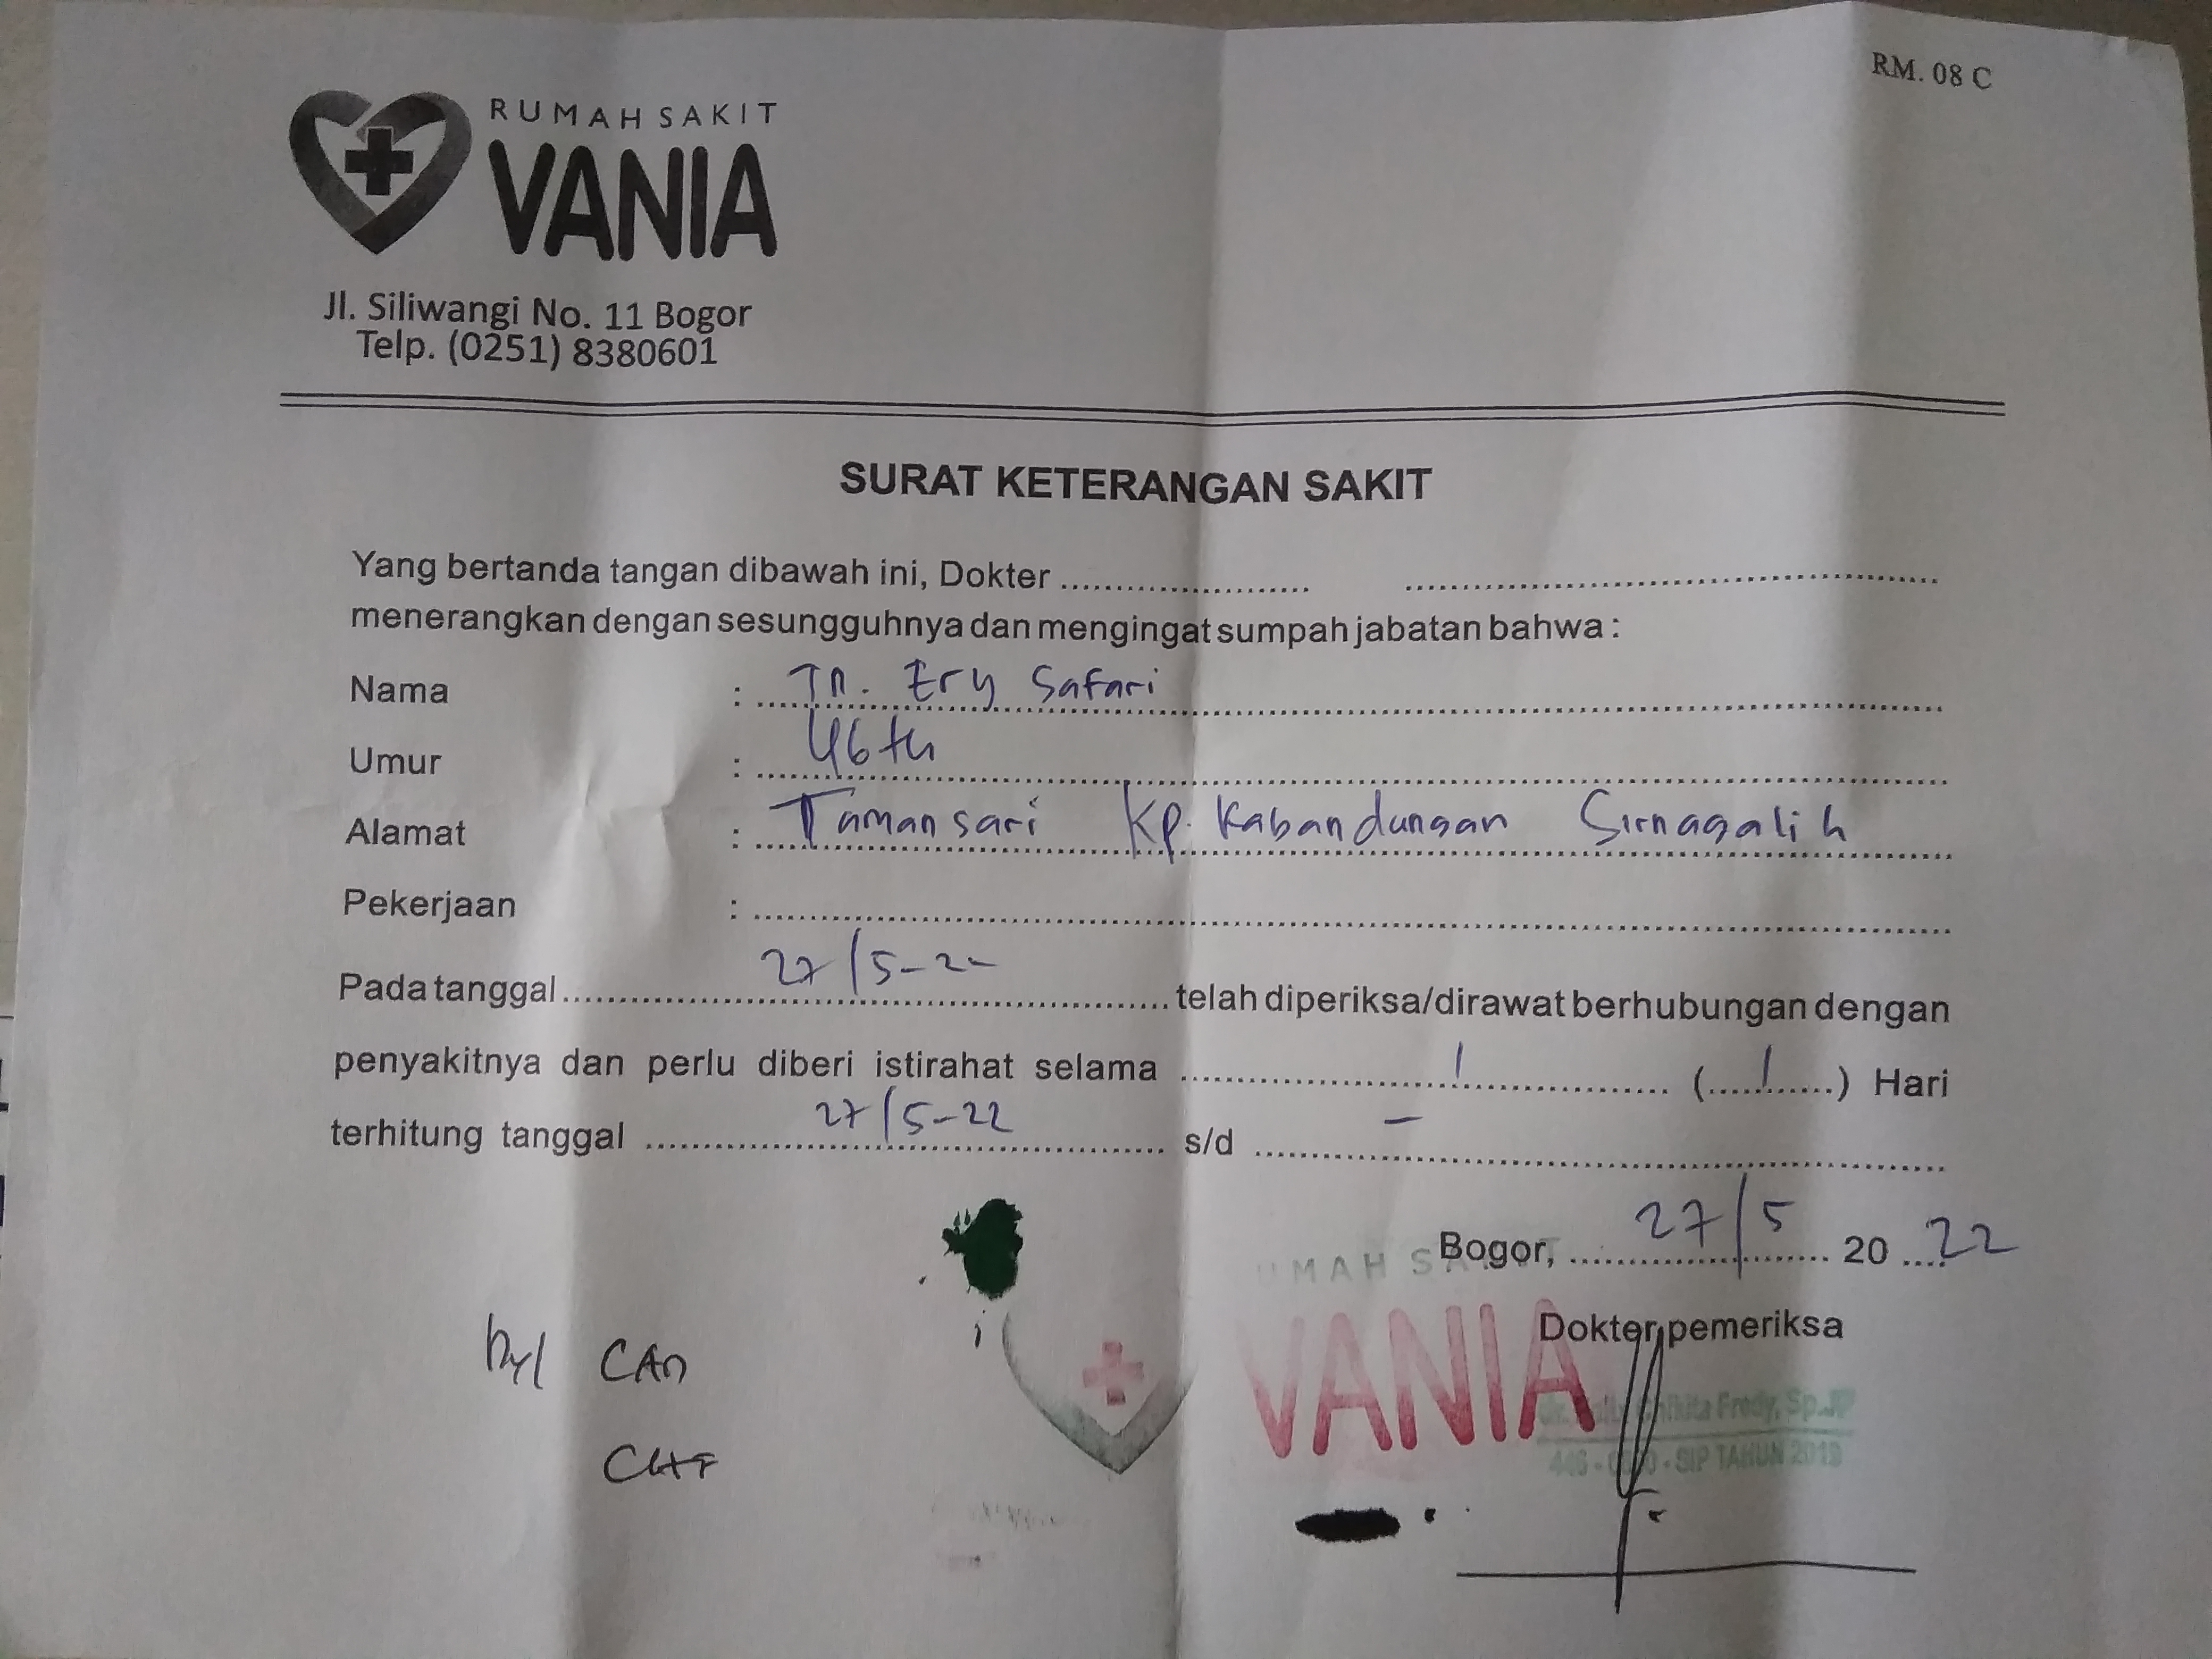 RM. 08 C
RUMAH SAKIT
VANIA
Jl. Siliwangi No. 11 Bogor
Telp. (0251) 8380601
SURAT KETERANGAN SAKIT
Yang bertanda tangan dibawah ini, Dokter ............................ ............................
menerangkan dengan sesungguhnya dan mengingat sumpah jabatan bahwa :
Nama : Tn. Ery Safari
Umur : 46 th
Alamat : Tamansari Kp. Kabandungan Sirnagalih
Pekerjaan : ............................
Pada tanggal 27/5-22 telah diperiksa/dirawat berhubungan dengan
penyakitnya dan perlu diberi istirahat selama 1 (1) Hari
terhitung tanggal 27/5-22 s/d -
Bogor, 27/5 20 22
Dokter pemeriksa
CAD
CHF
VANIA
Fredy, Sp.JP
SIP TAHUN 2019